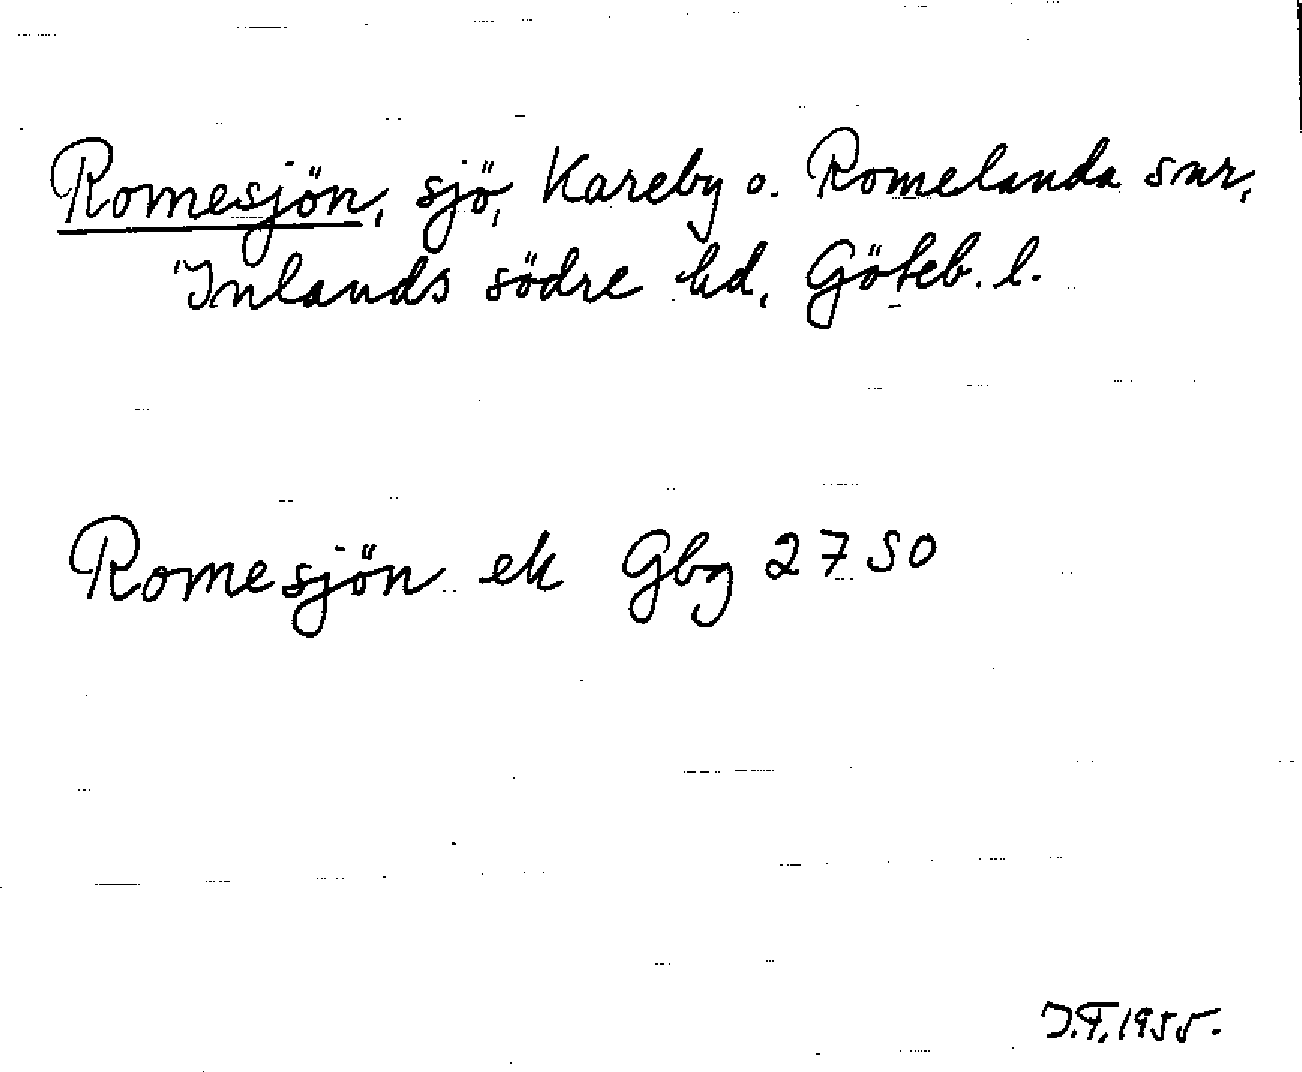 Romesjön, sjö, Kareby o. Romelanda snr,
Inlands södre hd, Göteb. l.
Romesjön ek Gbg 2750
J.F. 1955.